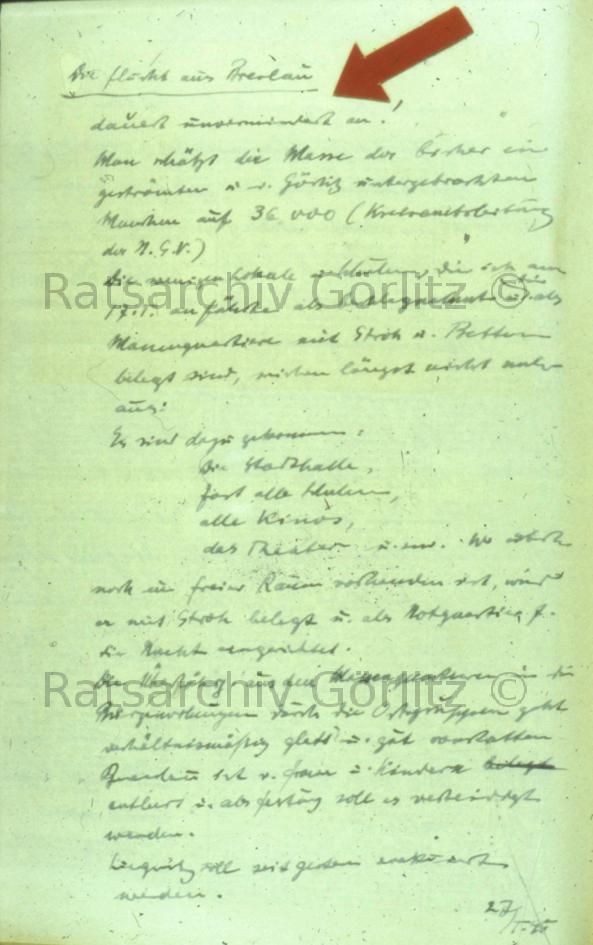 Die Flucht aus Breslau
dauert unvermindert an!
Man schätzt die Masse der bisher ein
geströmten u. i. Görlitz untergebrachten
Menschen auf 36 000 (Kreisamtsleitung
der N.S.V.)
Die wenigen Lokale u. Schulen, die ich am
17.I. anführte als belegt u. als
Massenquartiere mit Stroh u. Betten
belegt sind, reichen längst nicht mehr
aus:
Es sind dazu gekommen:
Die Stadthalle,
fast alle Schulen,
alle Kinos,
das Theater u.s.w. Wo
noch ein freier Raum vorhanden ist, wird
er mit Stroh belegt u. als Notquartier f.
die Nacht eingerichtet.
Die aus den in die
durch die Ortsgruppen geht
verhältnismäßig glatt u. gut vonstatten
Breslau ist v. Frauen u. Kindern belegt
entleert u. als Festung soll es verteidigt
werden.
Liegnitz soll seit gestern evakuiert
werden.
27/I.45
Ratsarchiv Görlitz ©
Ratsarchiv Görlitz ©